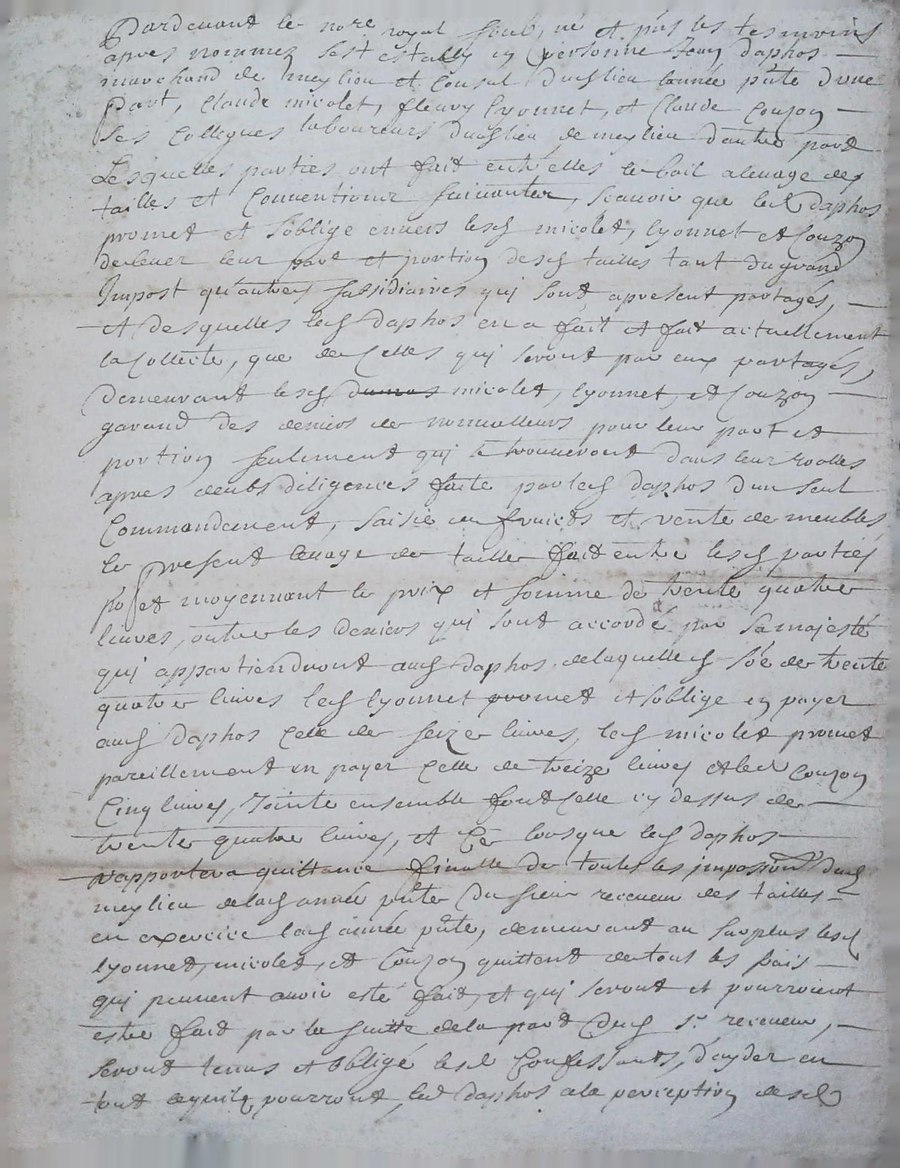 Pardevant le nore royal soub.né et pñs les tesmoins
apres nommez s'est estably en personne Jean daphos
marchand de meylieu et Consul dud lieu lannée pñte d'une
part, Claude nicolet, fleury lyonnet, et Claude Couzon
ses Collegues laboureurs dud lieu de meylieu d'autre part
Lesquelles parties ont fait entr'elles le bail a levage des
tailles et Conventions suivantes, scavoir que led daphos
promet et s'oblige envers lesd nicolet, lyonnet et Couzon
de lever leur part et portion desd tailles tant du grand
Impost qu'autres subsidiaires qui sont apresent partagés,
et desquelles led daphos en a fait et fait actuellement
la Collecte, que de Celles qui seront par eux partagés,
demeurant lesd nicolet, lyonnet, et Couzon
garand des deniers de nonvalleurs pour leur part et
portion seulement qui se trouveront dans leur roolles
apres deubs diligences faite par led daphos d'un seul
Commandement, saisie en fruicts et vente de meubles
le present levage de taille fait entre lesd parties
et moyennant le prix et somme de trente quatre
livres, outre les deniers qui sont accordé par sa majesté
qui appartiendront aud daphos, de laquelle d soe de trente
quatre livres led lyonnet promet et s'oblige en payer
aud daphos Celle de seize livres, led nicolet promet
pareillement en payer Celle de treize livres et led Couzon
Cinq livres, Jointe ensemble font Celle cy dessus de
trente quatre livres, et Ce lorsque led daphos
rapportera quittance finalle de toutes les impositions dud
meylieu de lad année pñte du sieur receveur des tailles
en exercice lad année pñte, demeurant au surplus lesd
lyonnet, nicolet, et Couzon quittent de tous les frais
qui peuvent avoir esté fait, et qui seront et pourront
estre fait par la suitte de la part dud sr. receveur,
seront tenus et obligé lesd Confessants, d'ayder en
tout ce qu'ils pourront led daphos a la perception desd